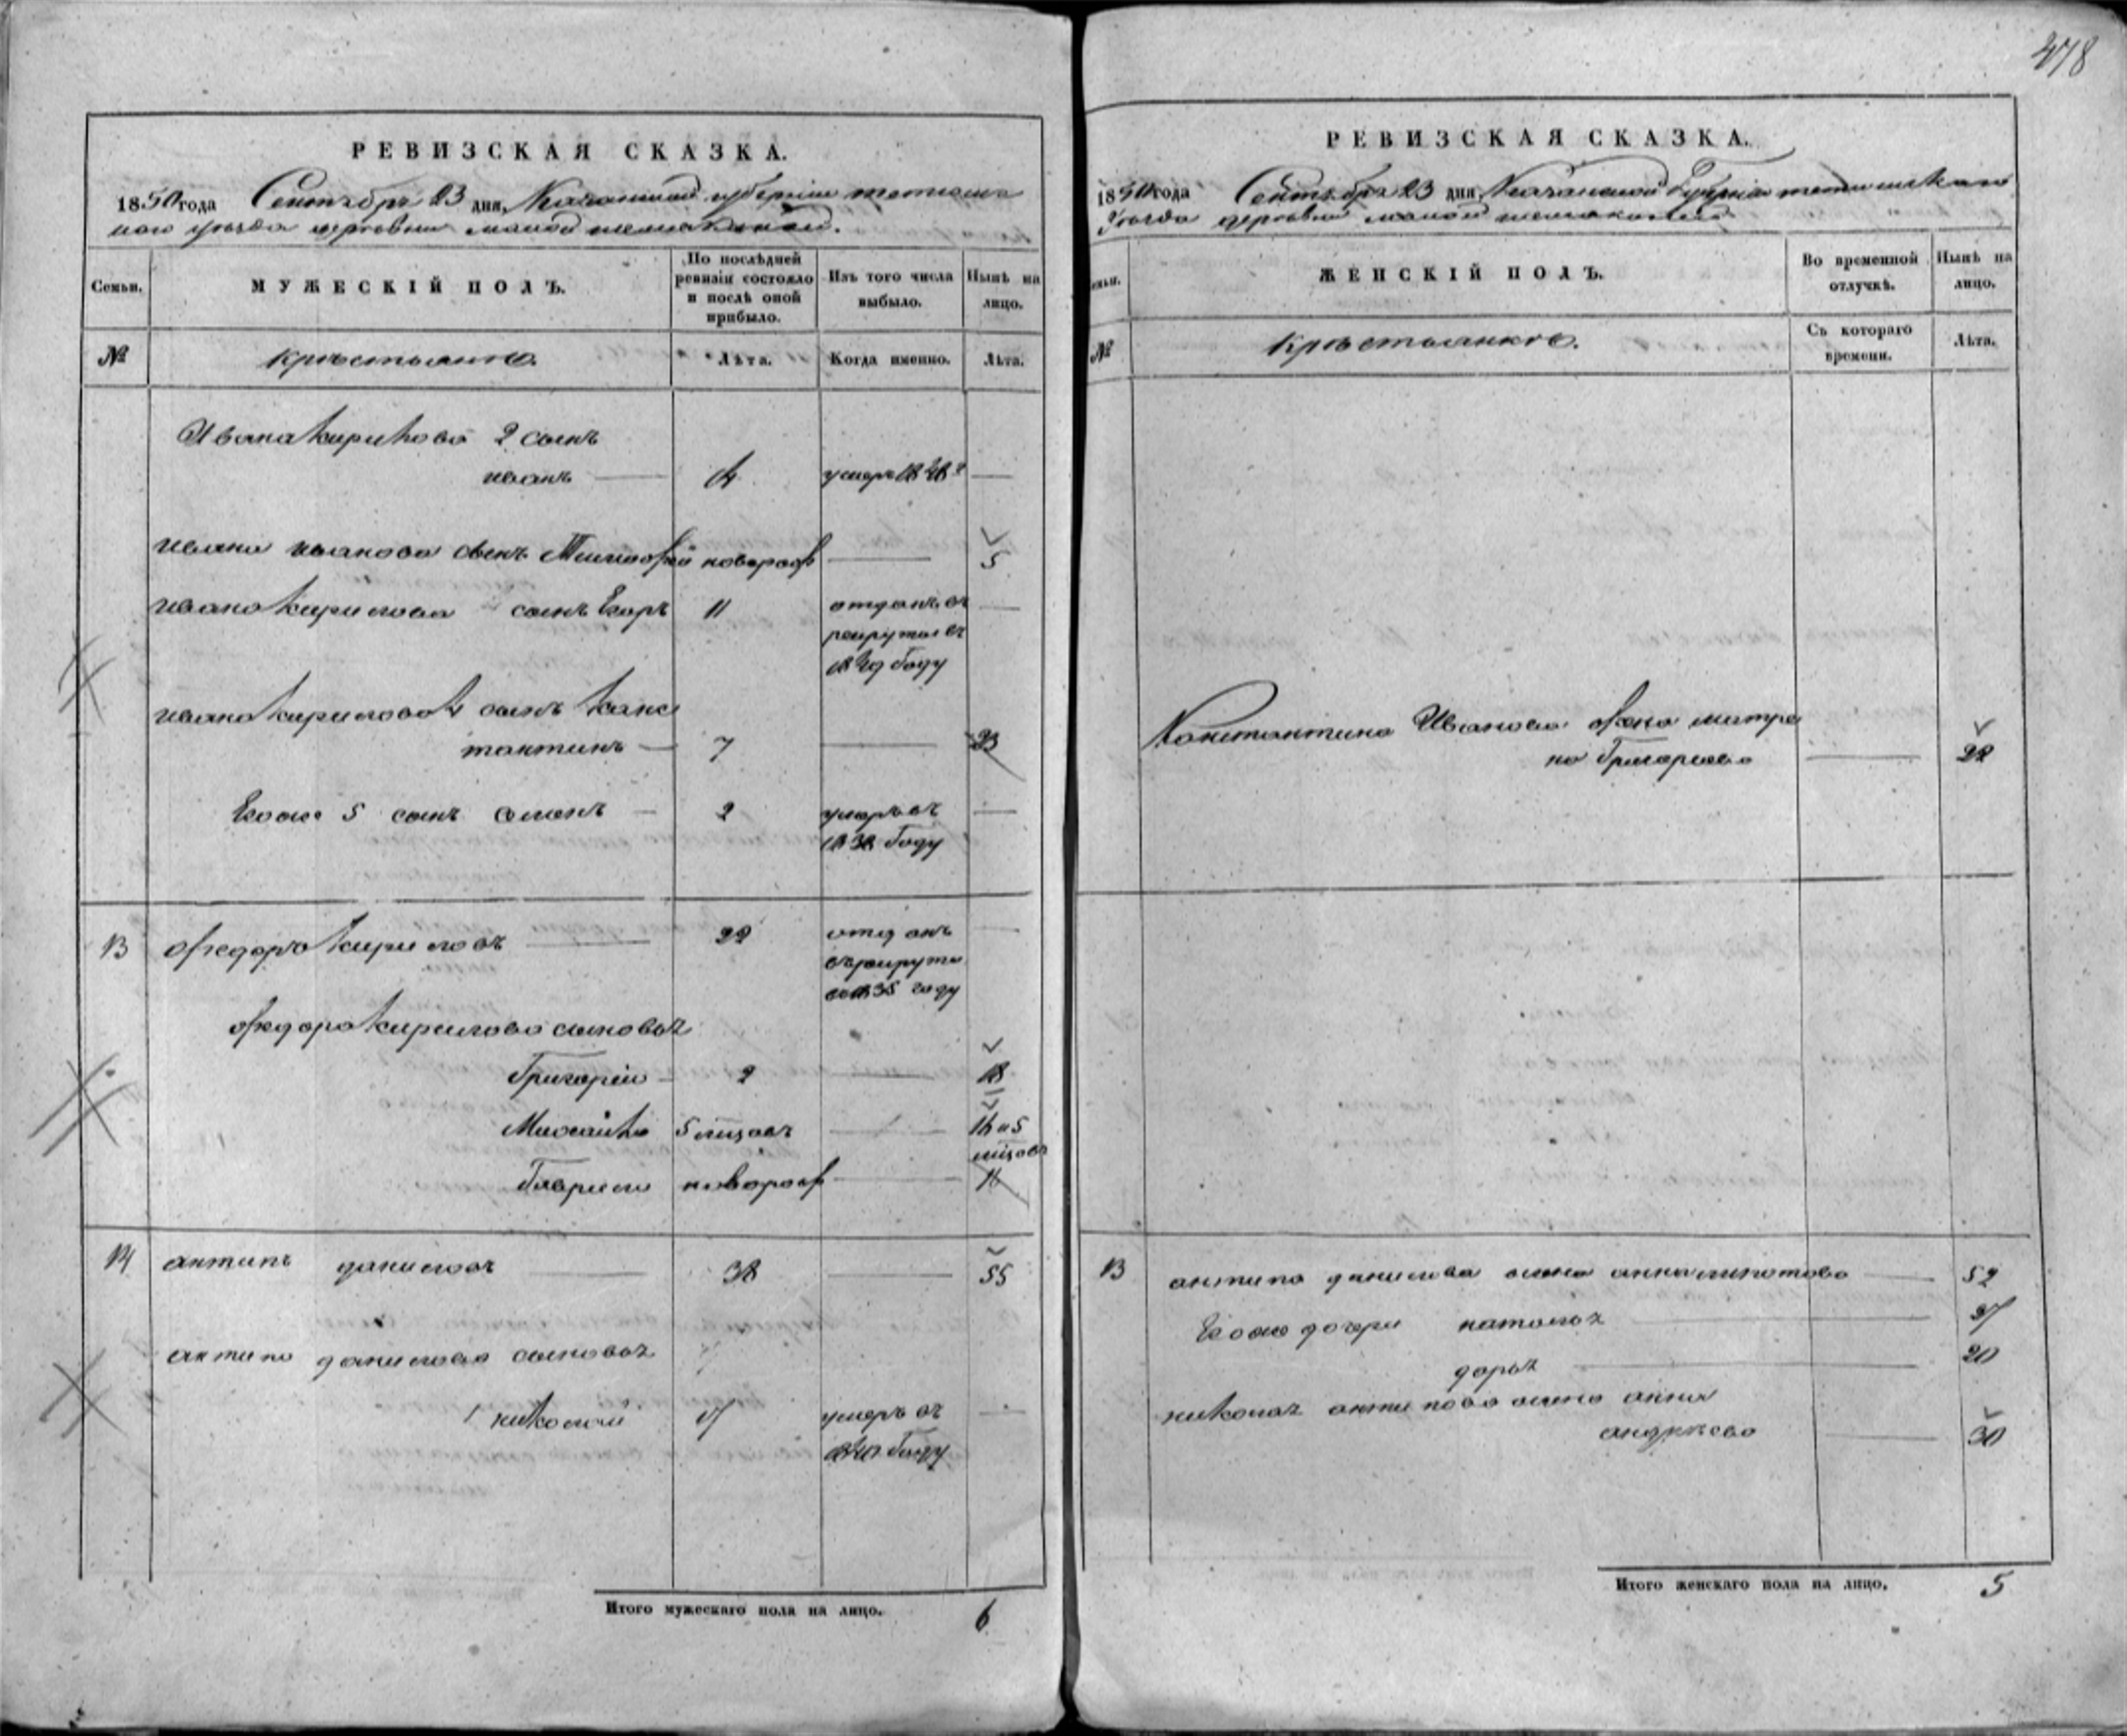 478
РЕВИЗСКАЯ СКАЗКА.
1850 года Сентебрь 23 дня, Казанской губернии тетюшс
каго уезда деревни малой шемякиной.
Семьи.
МУЖЕСКІЙ ПОЛЪ.
По послѣдней ревизіи состояло и послѣ оной прибыло.
Изъ того числа выбыло.
Нынѣ на лицо.
№
крѣстьяне.
Лѣта.
Когда именно.
Лѣта.
Ивана кирилова 2 сынъ
иванъ умеръ
ивана иванова сынъ Тимофей новорож 5
ивана кирилова сынъ Егоръ 11 отданъ въ
рекруты въ
году
ивана кирилова 4 сынъ канс
тантинъ 7 23
Егоже 5 сынъ семенъ 2 умеръ въ
1838 году
13 Федоръ кириловъ 22 отданъ
в рекруты
1835 году
Федора кирилова сыновья
Григорей 2 18
Михаила 5 мцовъ 16 и 5
мцовъ
Гаврило новорож 16
14 антипъ даниловъ 38 55
антипа данилова сыновья
1 николай 17 умеръ въ
году
Итого мужескаго пола на лицо. 6
РЕВИЗСКАЯ СКАЗКА.
1850 года Сентебрь 23 дня, Казанской Губерніи тетюшскаго
Уезда деревни малой шемякиной
ЖЕНСКІЙ ПОЛЪ.
Во временной отлучкѣ.
Нынѣ на лицо.
№
крѣстьянков.
Съ котораго времени.
Лѣта.
Константина Иванова жена матре
на Григорьева 22
13 антипа данилова жена анна 52
Егоже дочери наталья 27
дарья 20
николая антипова жена анна
андреева 30
Итого женскаго пола на лицо, 5